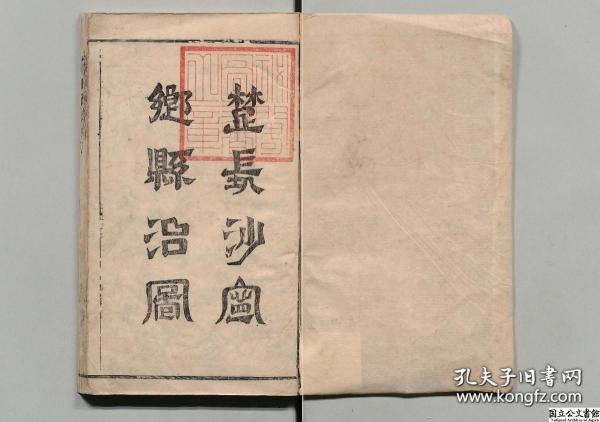 楚長沙寧
鄉縣治圖
孔夫子旧書网
www.kongfz.com
国立公文書館
National Archives of Japan